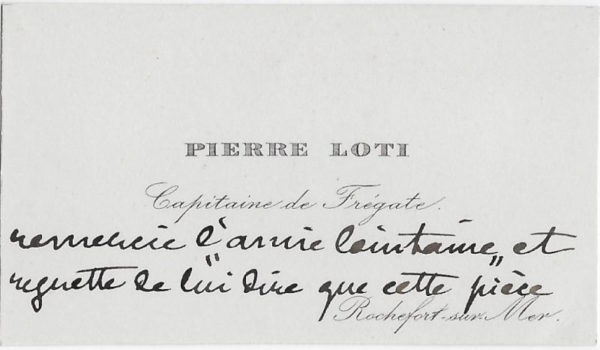 PIERRE LOTI
Capitaine de Frégate.
remercie "l'amie lointaine" et
regrette de lui dire que cette pièce
Rochefort-sur-Mer.